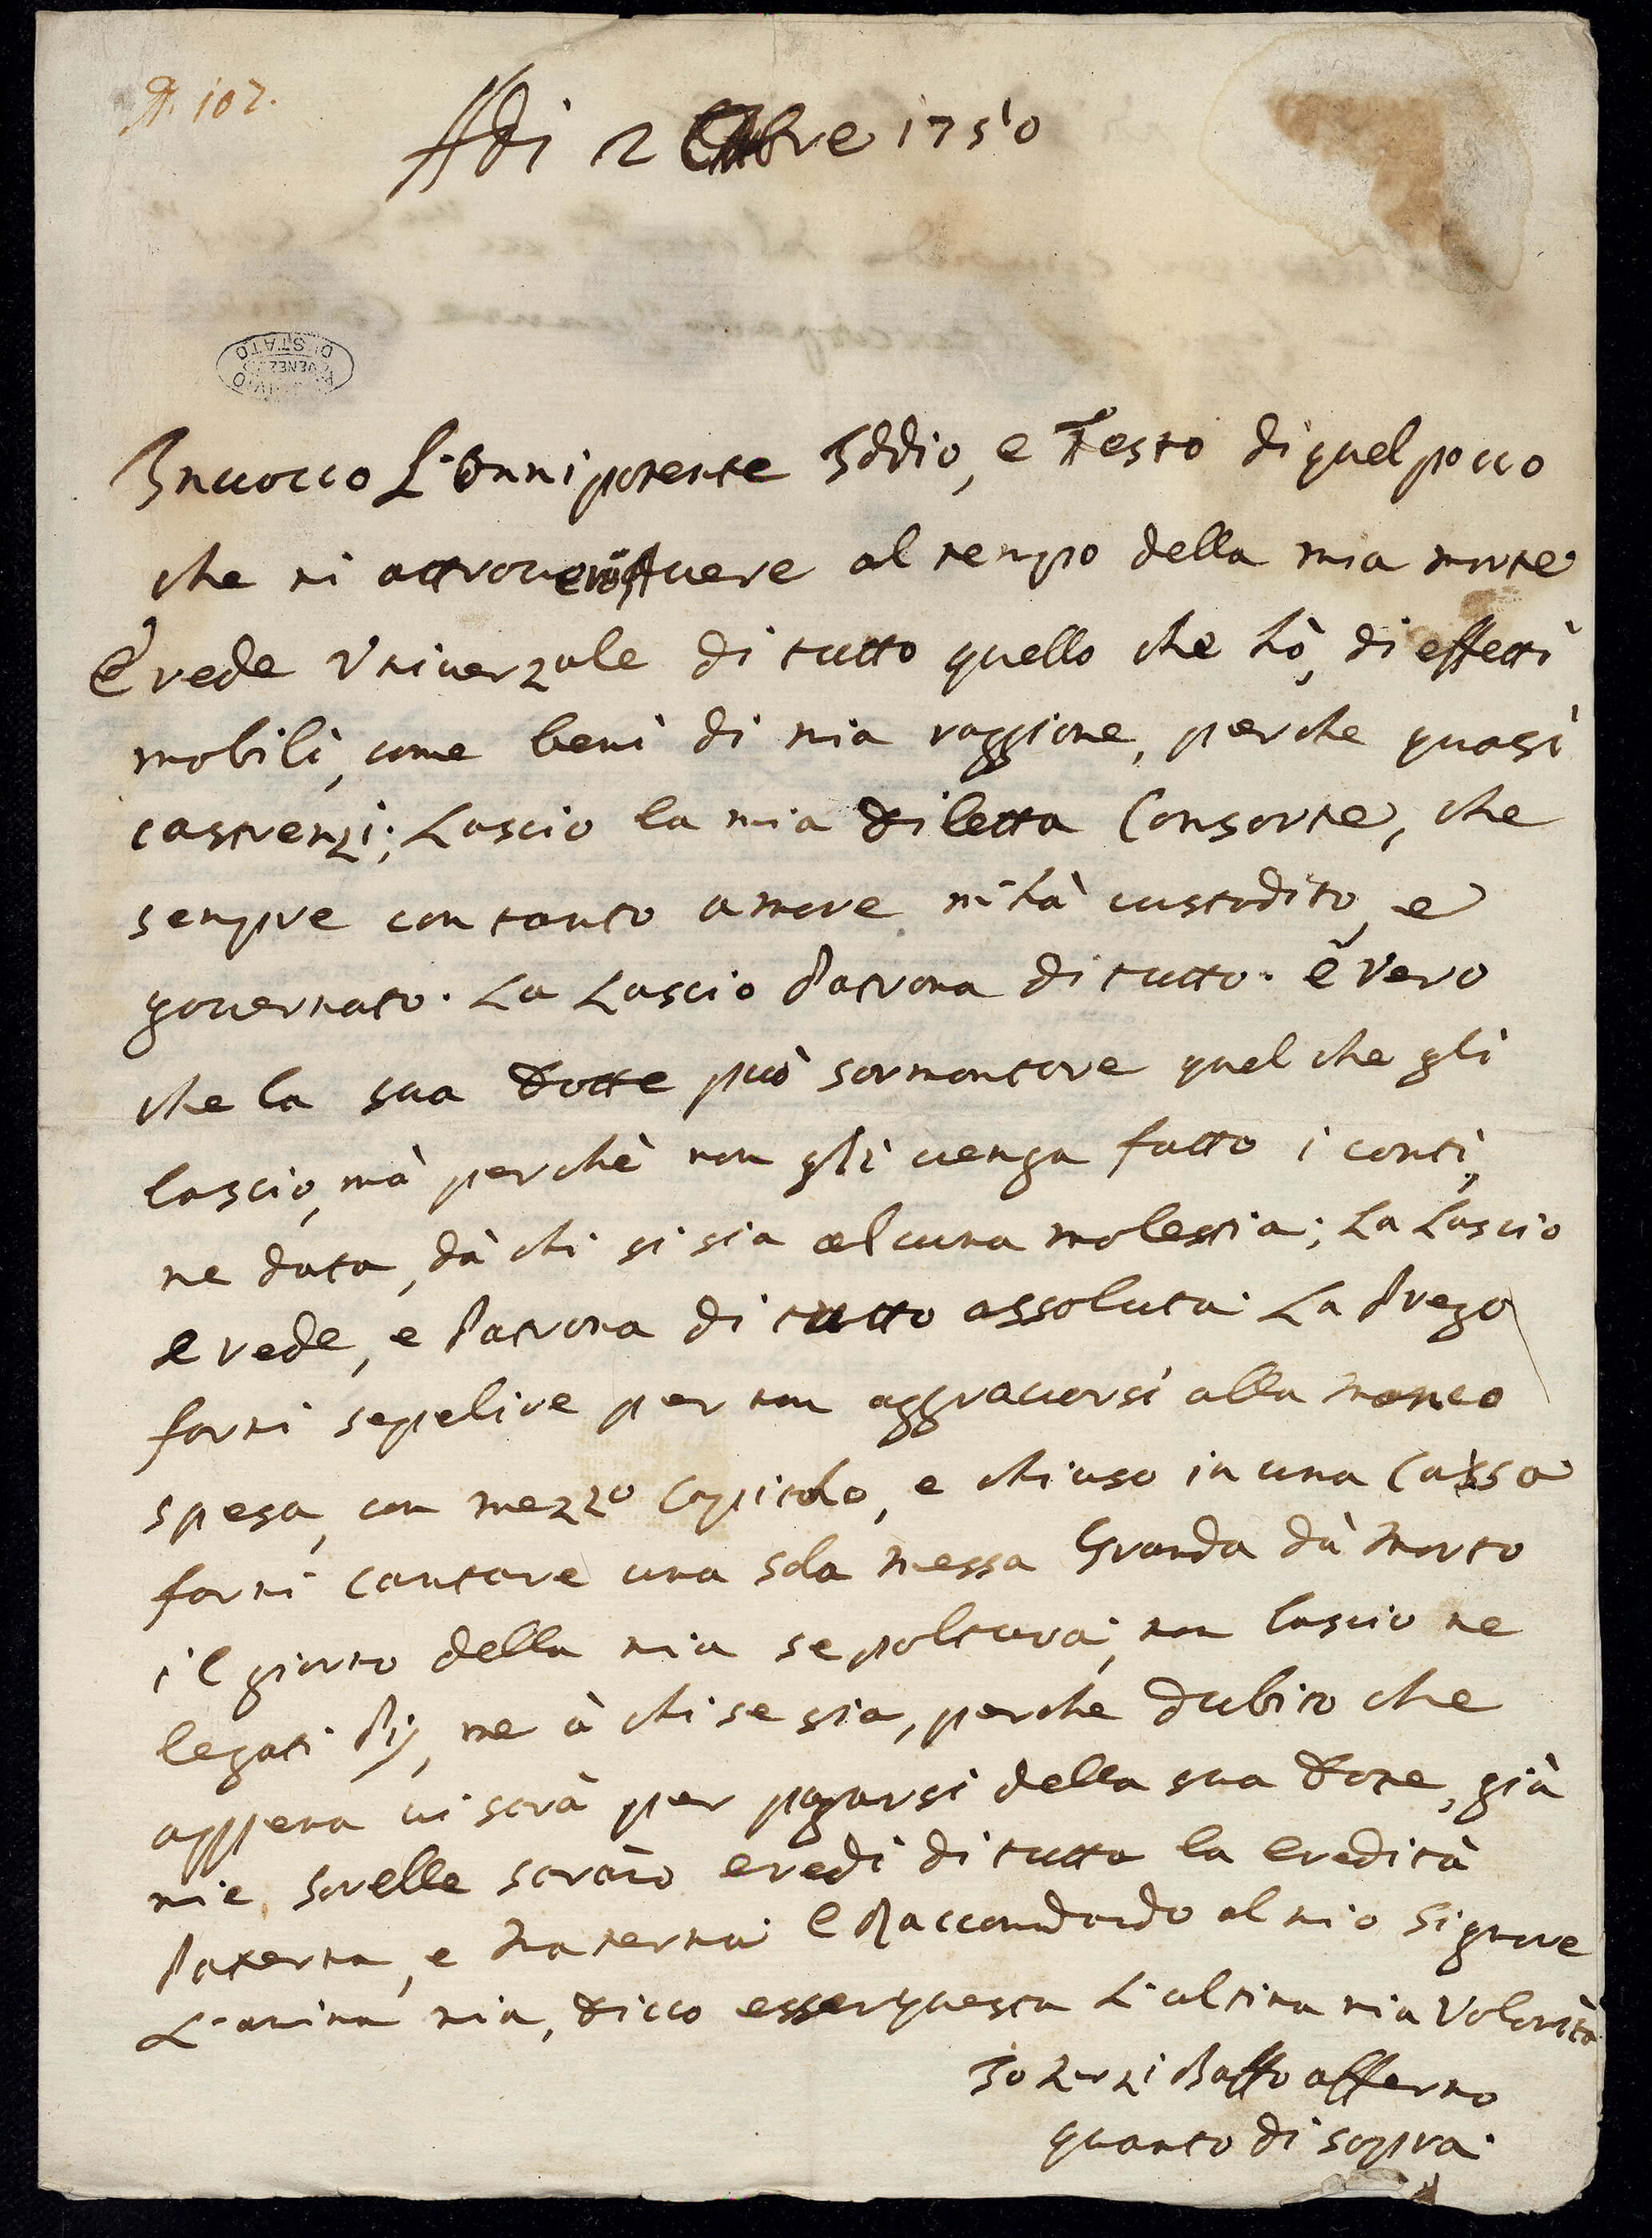 N. 107.
Adi 2 Obre 1750
ARCHIVIO
DI STATO
VENEZIA
Invocco L'Onnipotente Iddio, e Testo di quel pocco
che mi attroverò avere al tempo della mia morte
Erede Universale di tutto quello che hò, di effetti
mobili, come beni di mia raggione, perche quasi
castrenzi; Lascio la mia Diletta Consorte, che
sempre con tanto amore m'hà custodito, e
governato. La Lascio Patrona di tutto. è vero
che la sua Dotte può sormontare quel che gli
lascio, mà perchè non gli venga fatto i conti,
ne data, dà chi si sia alcuna molestia; La Lascio
erede, e Patrona di tutto assoluta. La Prego
farmi sepelire per non aggravarsi alla manco
spesa, con mezzo Capitolo, e chiuso in una Cassa
farmi Cantare una sola messa Granda dà Morto
il giorno della mia sepoltura; non lascio ne
legati Pij, ne à chi se sia, perche dubito che
appena vi sarà per pagarsi della sua Dote, già
mie sorelle saràno eredi di tutta la eredità
Paterna, e Materna. E Raccomdando al mio Signore
L'anima mia, Dicco esser questa L'ultima mia Volontà
Io Zorzi Baffo affermo
quanto di sopra.